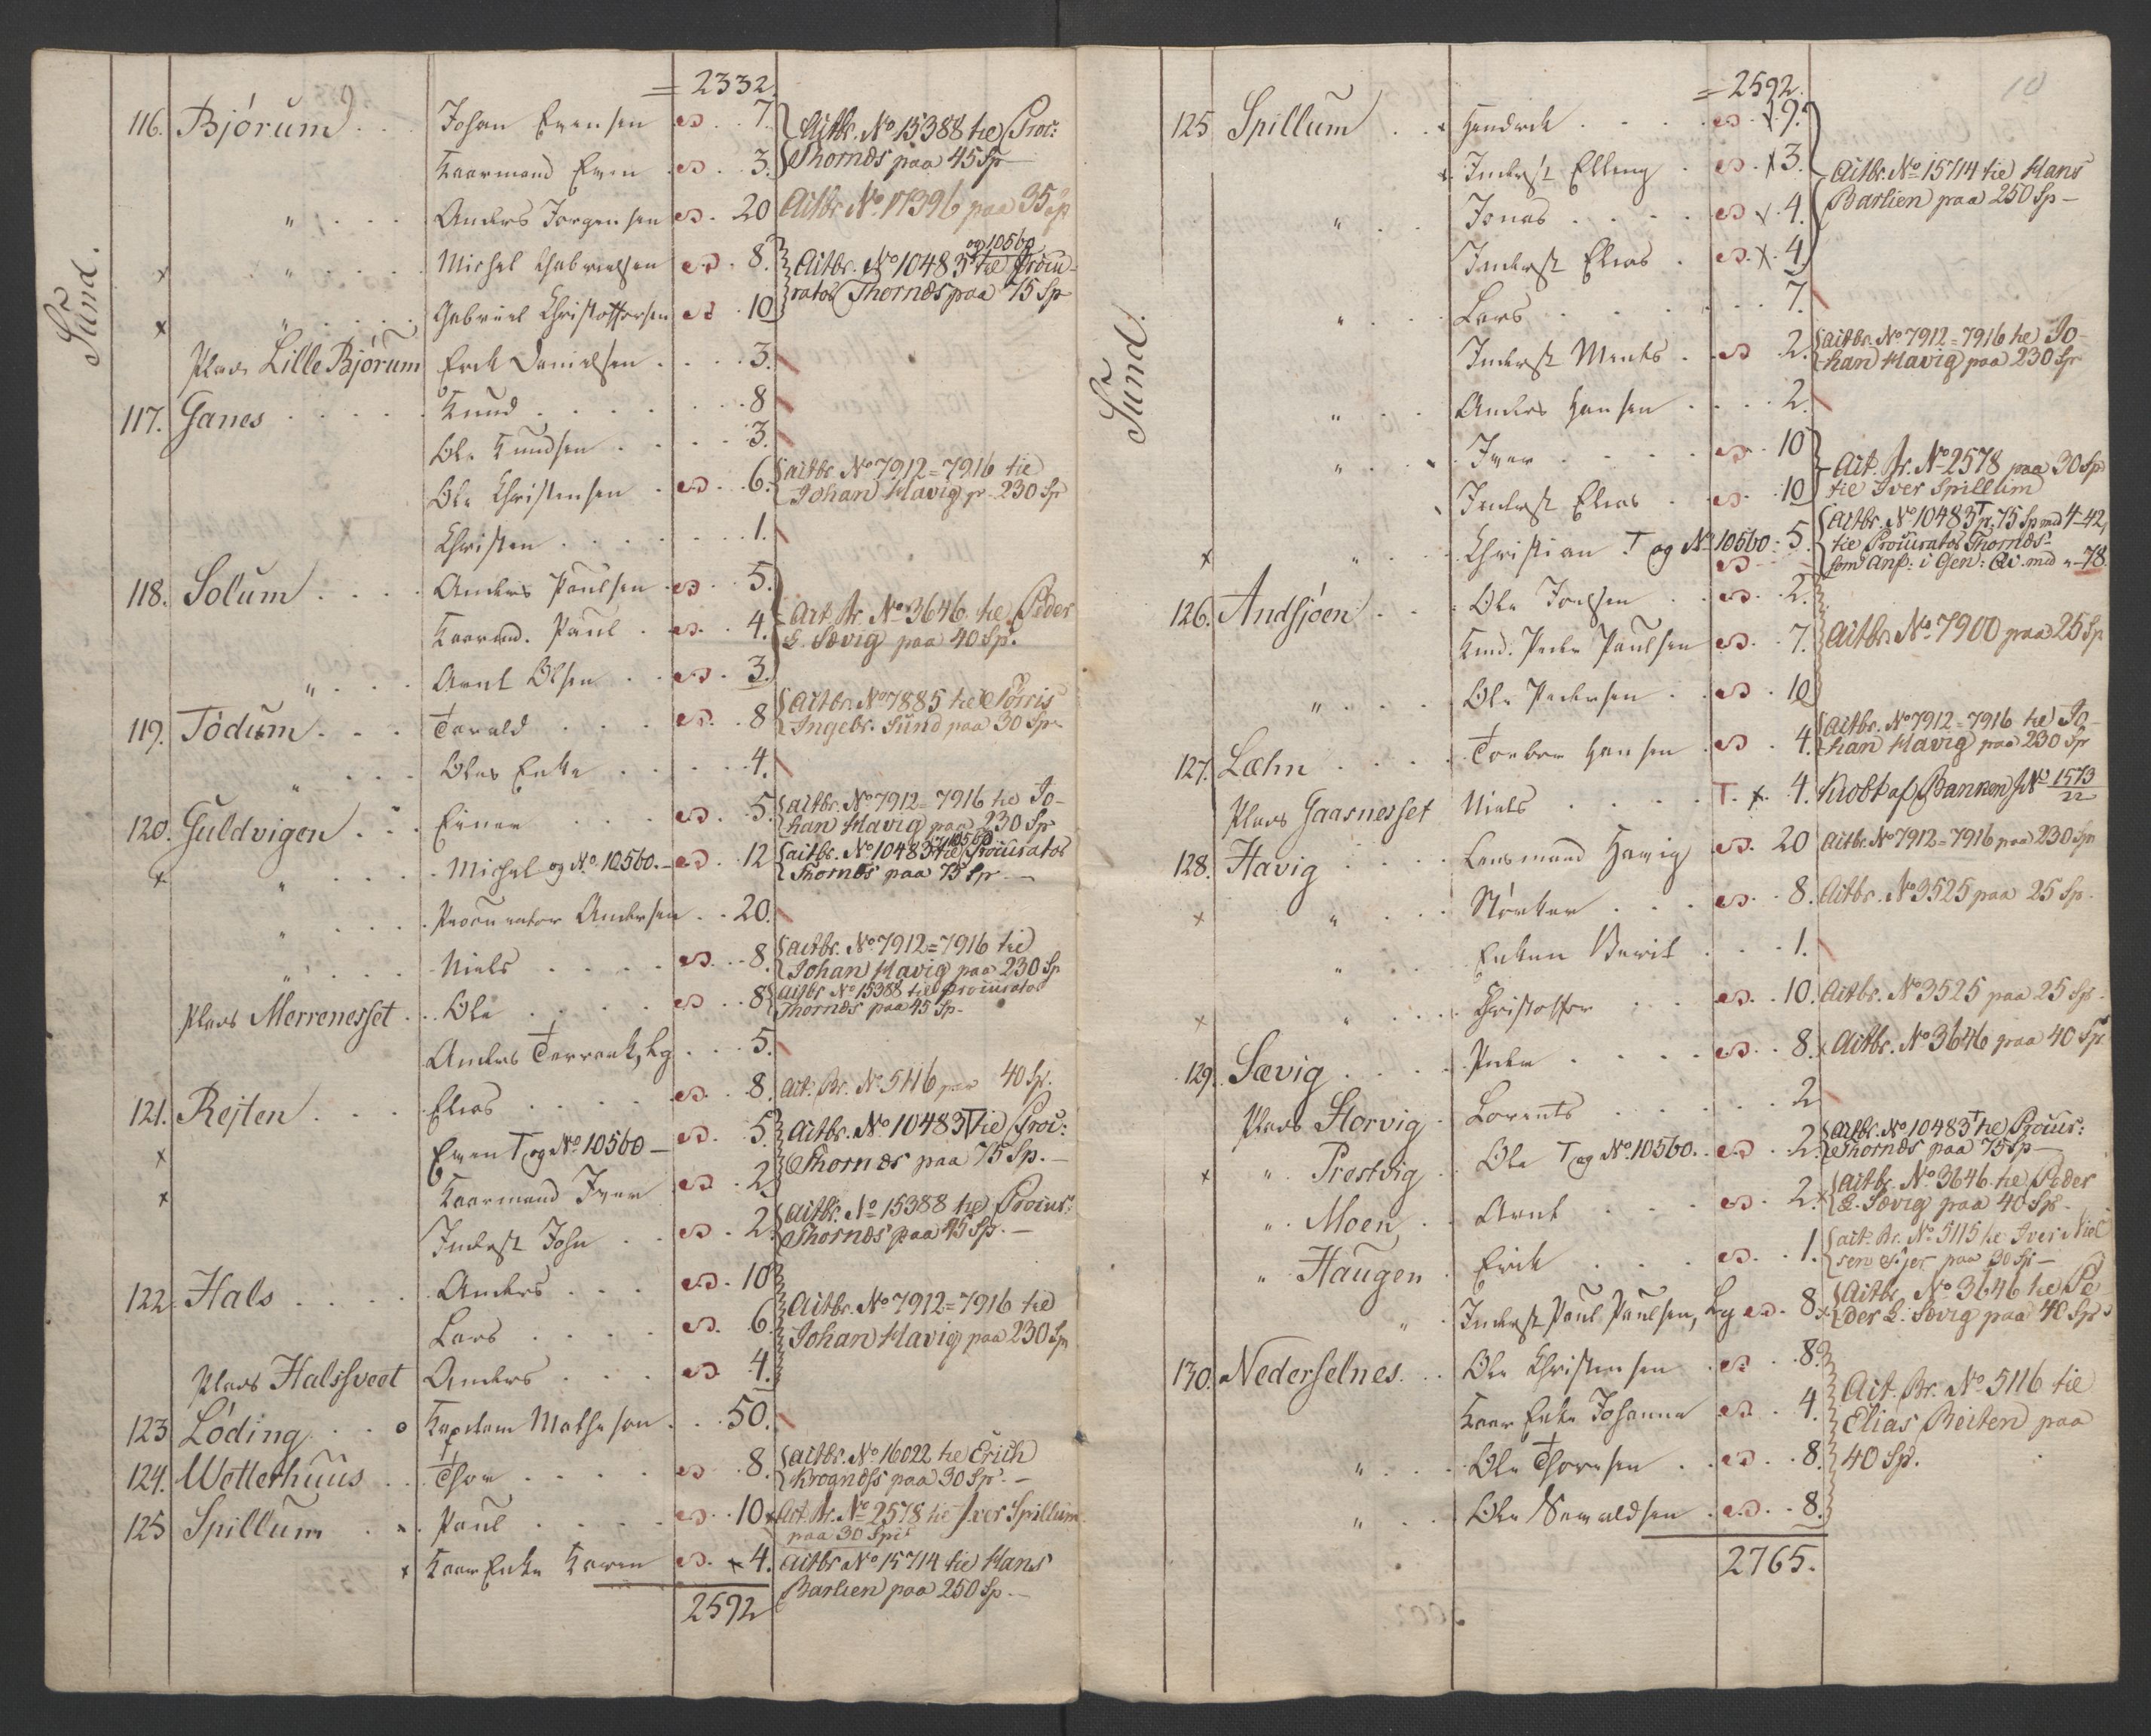 Sund.
= 2332.
116. Bjórum . . . Johan Evensen . 7. Aitbr. No 15388 til Proc:
Kaarmand Even . . 3. Thornæs paa 45 Sp
" . . . Anders Jørgensen . 20 Aitbr No 17396 paa 35 Sp
x " . . . Michel Gabrielsen . 8. Aitbr. No 10483 og 10560 til Procu-
x " . . . Gabriel Christoffersen . 10 rator Thornæs paa 75 Sp
Plads Lille Bjórum Erik Danielsen . . . 3.
117. Ganes . . . . . Knud . . . . . 8
Ole Knudsen . . . . 3.
Ole Christensen . . 6. aitbr No 7912=7916 til
Johan Havig pr. 230 Sp
Christen . . . . . . 1.
118. Solum . . . . Anders Paulsen . 5.
Kaarmd. Paul . . 4. Ait. Br. No 3646 til Peder
E. Sævig paa 40 Sp.
" . . . Arnt Olsen . . . 3.
119. Tódum . . . Torald . . . . 8 Aitbr. No 7885 til Nórris
Ingebr. Sund paa 30 Sp
" . . . Oles Enke . . . . . 4.
120. Guldvigen . . . Einer . . . . 5. aitbr. No 7912=7916 til Jo-
han Havig paa 230 Sp
x " . . . Michel og No. 10560. — . 12 aitbr. No 10483 til Procurator
Thornæs paa 75 Sp. —
" . . . Procurator Andersen . . 20.
" . . . Niels . . . . 8. aitbr. No 7912=7916 til
Johan Havig paa 230 Sp
Plads Merrenesset . . Ole . . . . 8 aitbr No 15388 til Procurator
Thornæs paa 45 Sp.
Anders . . . 5.
121. Rejten . . . Elias . . . . 8. Ait. Br. No 5116 paa 40 Sp.
x Even T og No. 10560 — . 5. Aitbr. No 10483 T til Proc:
x Kaarmand Iver . 2. Thornæs paa 75 Sp. —
Inderst John . . 2. Aitbr. No 15388 til Procur:
Thornæs paa 45 Sp. —
122. Hals . . . . Anders . . . 10
Lars . . . . 6. Aitbr. No 7912=7916 til
Johan Havig paa 230 Sp
Plads Halssveet Anders . . . 4.
123 Lóding . . o Kapitain Matheson . . 50.
124. Wetterhuus . . Thor . . . . 8. aitbr. No 16022 til Erich
Krognæss paa 30 Sp. —
125 Spillum . . Paul . . . . . 10 x Ait. Br. No 2578 til Iver Spillum
paa 30 Spd
x Kaar Enke Karen . x 4. aitbr No 15714 til Hans
Barlien paa 250 Sp. —
2592
10
Sund.
= 2592.
125 Spillum . . x Hendrik . . . . x 9.
x Inderst Elling . . x 3. Aitbr. No 15714 til Hans
" . . Jonas . . . . x 4. Barlien paa 250 Sp —
Inderst Elias . . x 4.
" . . Lars . . . . . . 7.
Inderst Ments . . 2. aitbr. No 7912=7916 til Jo-
han Havig paa 230 Sp
" . . Anders Hansen . . . . 2.
" . . Iver . . . . . 10 Ait. Br. No 2578 paa 30 Sp
Inderst Elias . . . 10 til Iver Spillum
x " . . Christian T og No 10560 . 5. Aitbr. No 10483 T pr. 75 Sp med 4–42,
til Procurator Thornæs
som Anf: i Gen: Qv. med " – 78.
126. Andsjóen . . Ole Joensen . . . 2.
Kmd. Peder Paulsen . 7. Aitbr. No. 7900 paa 25 Sp
" . . . Ole Pedersen . . 10
127. Læhn . . . . Hansen . . 4. Aitbr. No 7912=7916 til Jo-
han Havig paa 230 Sp
Plads Gaasnesset Niels . . . . T. x. 4. Kiobt af Banken No 1573/22
128. Havig . . . . Lensmand Havig . 20 aitbr. No 7912=7916 paa 230 Sp
x " . . . Størker . . . . 8. Aitbr. No 3525 paa 25 Sp.
" . . . Enken Berit . . . 1.
x " . . . Christoffer . . . 10. Aitbr. No 3525 paa 25 Sp.
129. Sævig . . . . Peder . . . . . 8. x Aitbr. No 3646 paa 40 Sp
Plads Storvig . Lorents . . . . . . 2
x " Prestvig . Ole T og No. 10560. . 2. aitbr. No 10483 T til Procur:
Thornæs paa 75 Sp —
" Moen . . Arnt . . . . 2. x aitbr. No 3646 til Peder
E. Sævig paa 40 Sp.
" Haugen . Erik . . . . 1. ait. Br. No 5115 til Iver Niel
sen paa 30 Sp —
" . Inderst Paul Paulsen, . 8. x Aitbr. No 3646 til Pe
der E. Sævig paa 40 Sp.
130. Nederselnes. . . Ole Christensen . . 8.
Kaar Enke Johanna . 4. Ait. Br. No 5116 til
Elias Reiten paa
" . . . Ole Thoresen . . . 8. 40 Sp.
" . . Ole . . 8.
2765.